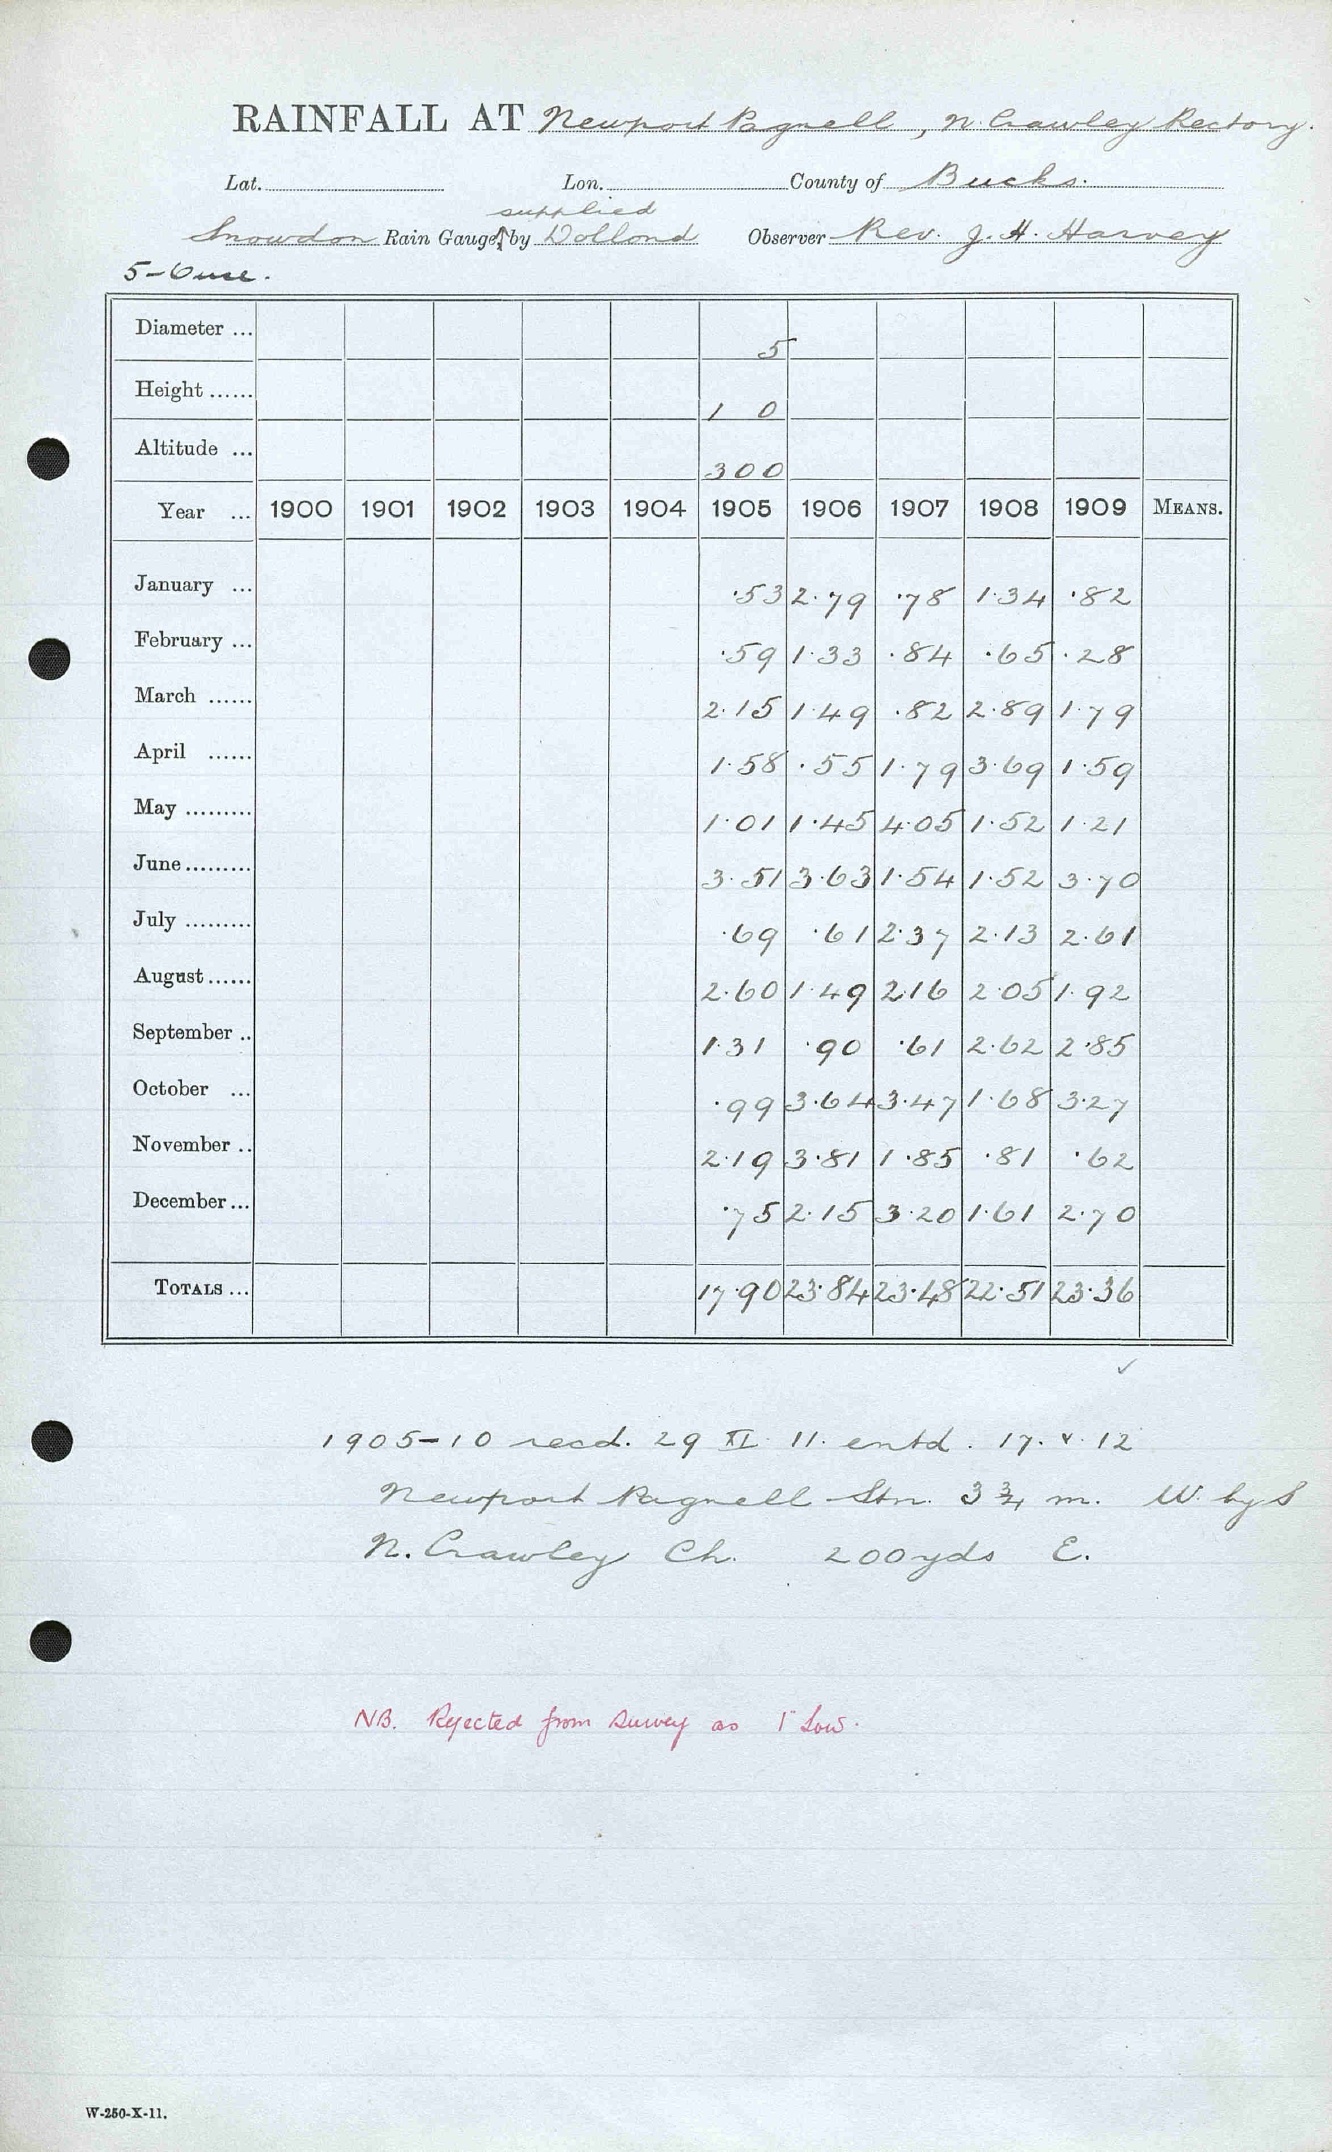 RAINFALL AT Newport Pagnell, N. Crawley Rectory.
Lat. Lon. County of Bucks.
supplied
Snowdon Rain Gauge, by Dollond Observer Rev. J. H. Harvey
5-Ouse.
Diameter ... 5
Height ...... 1 0
Altitude ... 300
Year ... 1900 1901 1902 1903 1904 1905 1906 1907 1908 1909 MEANS.
January ... ·53 2·79 ·78 1·34 ·82
February ... ·59 1·33 ·84 ·65 ·28
March ...... 2·15 1·49 ·82 2·89 1·79
April ...... 1·58 ·55 1·79 3·69 1·59
May ......... 1·01 1·45 4·05 1·52 1·21
June ......... 3·51 3·63 1·54 1·52 3·70
July ......... ·69 ·61 2·37 2·13 2·61
August ...... 2·60 1·49 2·16 2·05 1·92
September .. 1·31 ·90 ·61 2·62 2·85
October ... ·99 3·64 3·47 1·68 3·27
November .. 2·19 3·81 1·85 ·81 ·62
December ... ·75 2·15 3·20 1·61 2·70
TOTALS ... 17·90 23·84 23·48 22·51 23·36
✓
1905-10 recd. 29 XI 11. entd. 17. V. 12
Newport Pagnell Stn. 3 3/4 m. W. by S
N. Crawley Ch. 200 yds E.
NB. Rejected from Survey as 1" Low.
W-250-X-11.